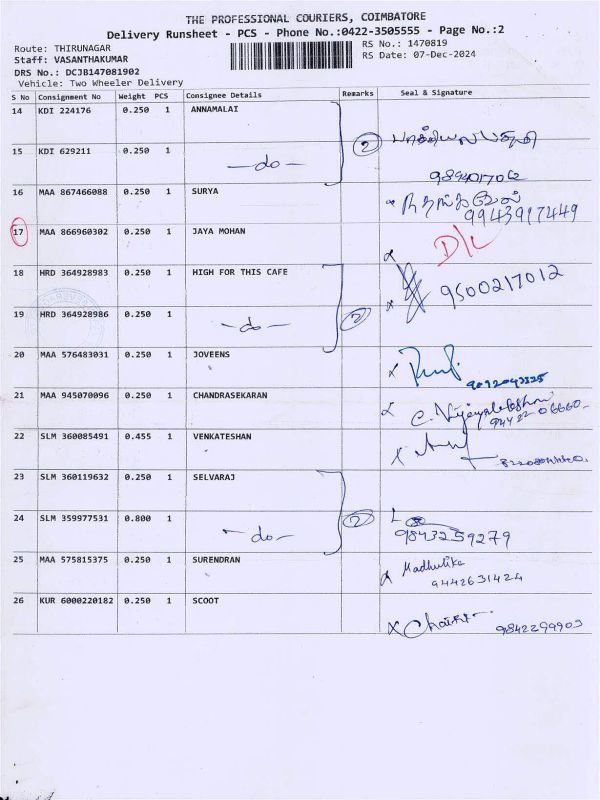 THE PROFESSIONAL COURIERS, COIMBATORE
Delivery Runsheet - PCS - Phone No.:0422-3505555 - Page No.:2
Route: THIRUNAGAR
RS No.: 1470819
Staff: VASANTHAKUMAR
RS Date: 07-Dec-2024
DRS No.: DCJB147081902
Vehicle: Two Wheeler Delivery
S No Consignment No Weight PCS Consignee Details Remarks Seal & Signature
14 KDI 224176 0.250 1 ANNAMALAI
15 KDI 629211 0.250 1 -do- 2
16 MAA 867466088 0.250 1 SURYA
9943917449
17 MAA 866960302 0.250 1 JAYA MOHAN D/L
18 HRD 364928983 0.250 1 HIGH FOR THIS CAFE 9500217012
19 HRD 364928986 0.250 1 -do- 2
20 MAA 576483031 0.250 1 JOVEENS
21 MAA 945070096 0.250 1 CHANDRASEKARAN
22 SLM 360085491 0.455 1 VENKATESHAN
23 SLM 360119632 0.250 1 SELVARAJ
24 SLM 359977531 0.800 1 -do- 2
9843259279
25 MAA 575815375 0.250 1 SURENDRAN Madhulika
9442631424
26 KUR 6000220182 0.250 1 SCOOT
9842299903